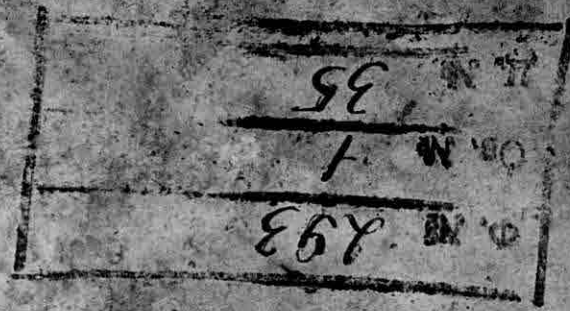 Ф. № 293
Оп. № 1
Д. № 35